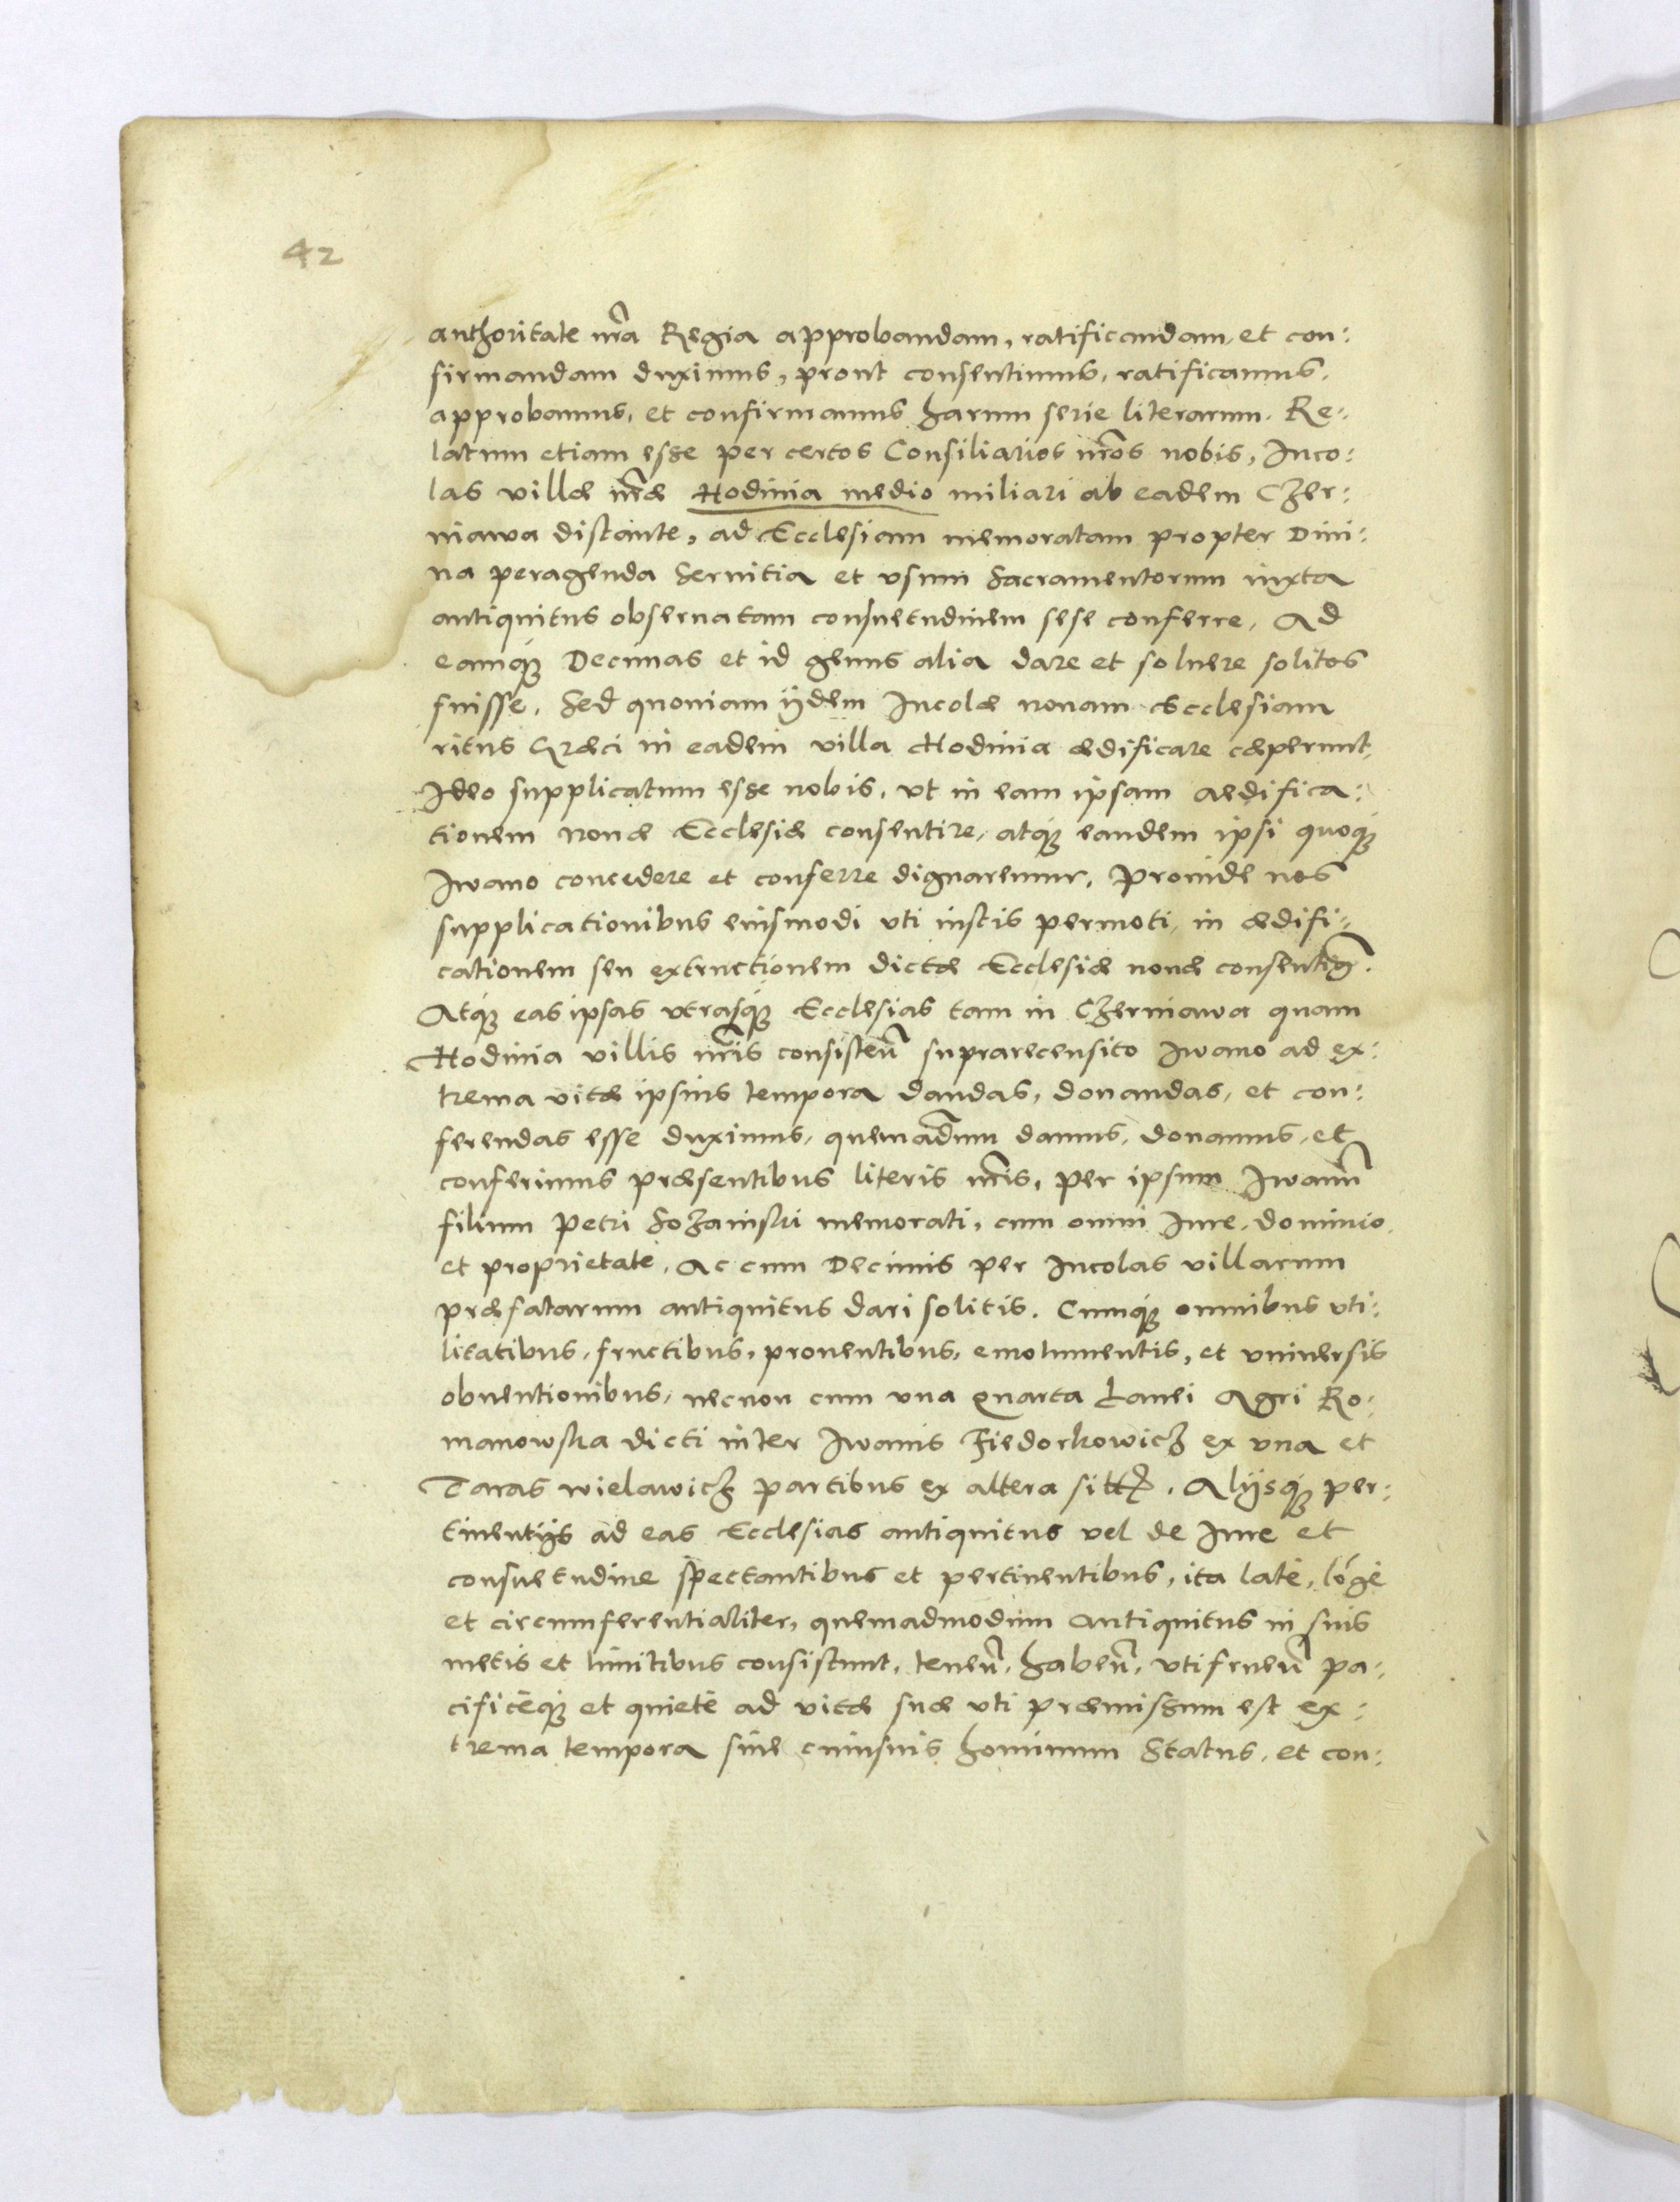 42
authoritate nrã Regia approbandam, ratificandam, et con:
firmandam duximus, prout consentimus, ratificamus,
approbamus, et confirmamus harum serie literarum. Re:
latum etiam esse per certos Consiliarios nrõs nobis, Inco:
las villæ nrãe Hodinia medio miliari ab eadem Czer:
niawa distante, ad Ecclesiam memoratam propter Diui:
na peragenda Seruitia et vsum Sacramentorum iuxta
antiquitus obseruatam consuetudinem sese conferre, Ad
eamq́ Decimas et id genus alia dare et soluere solitos
fuisse. Sed quoniam ijdem Incolæ nouam Ecclesiam
ritus Græci in eadem villa Hodinia ædificare cæperunt,
Ideo supplicatum esse nobis, vt in eam ipsam ædifica:
tionem nouæ Ecclesiæ consentire, atq́ eandem ipsi quoq́
Iwano concedere et conferre dignaremur. Proinde nos
supplicationibus eiusmodi vti iustis permoti, in ædifi:
cationem seu extructionem dictæ Ecclesiæ nouæ consentieñ.
Atq́ eas ipsas vtrasq́ Ecclesias tam in Czerniawa quam
Hodinia villis nrĩs consisteñ suprarecensito Iwano ad ex:
trema vitæ ipsius tempora dandas, donandas, et con:
ferendas esse duximus, quemadmũm damus, donamus, et
conferimus præsentibus literis nrĩs, per ipsum Iwanũ
filium Petri Sozanski memorati, cum omni Iure, dominio
et proprietate, Ac cum Decimis per Incolas villarum
præfatarum antiquitus dari solitis. Cumq́ omnibus vti:
litatibus, fructibus, prouentibus, emolumentis, et vniuersis
obuentionibus, necnon cum vna Quarta Lanei Agri Ro:
manowska dicti inter Iwanis Fiedorkowicz ex vna et
Taras Wielawicz partibus ex altera sitt. Alijsq́ per:
tinentijs ad eas Ecclesias antiquitus vel de Iure et
consuetudine spectantibus et pertinentibus, ita latè, lõgè
et circumferentialiter, quemadmodum antiquitus in suis
metis et limitibus consistunt, teneñ, habeñ, vtifrueñ pa:
cificèq́ et quietè ad vitæ suæ vti præmissum est ex:
trema tempora siue cuiusuis hominum Status, et con: